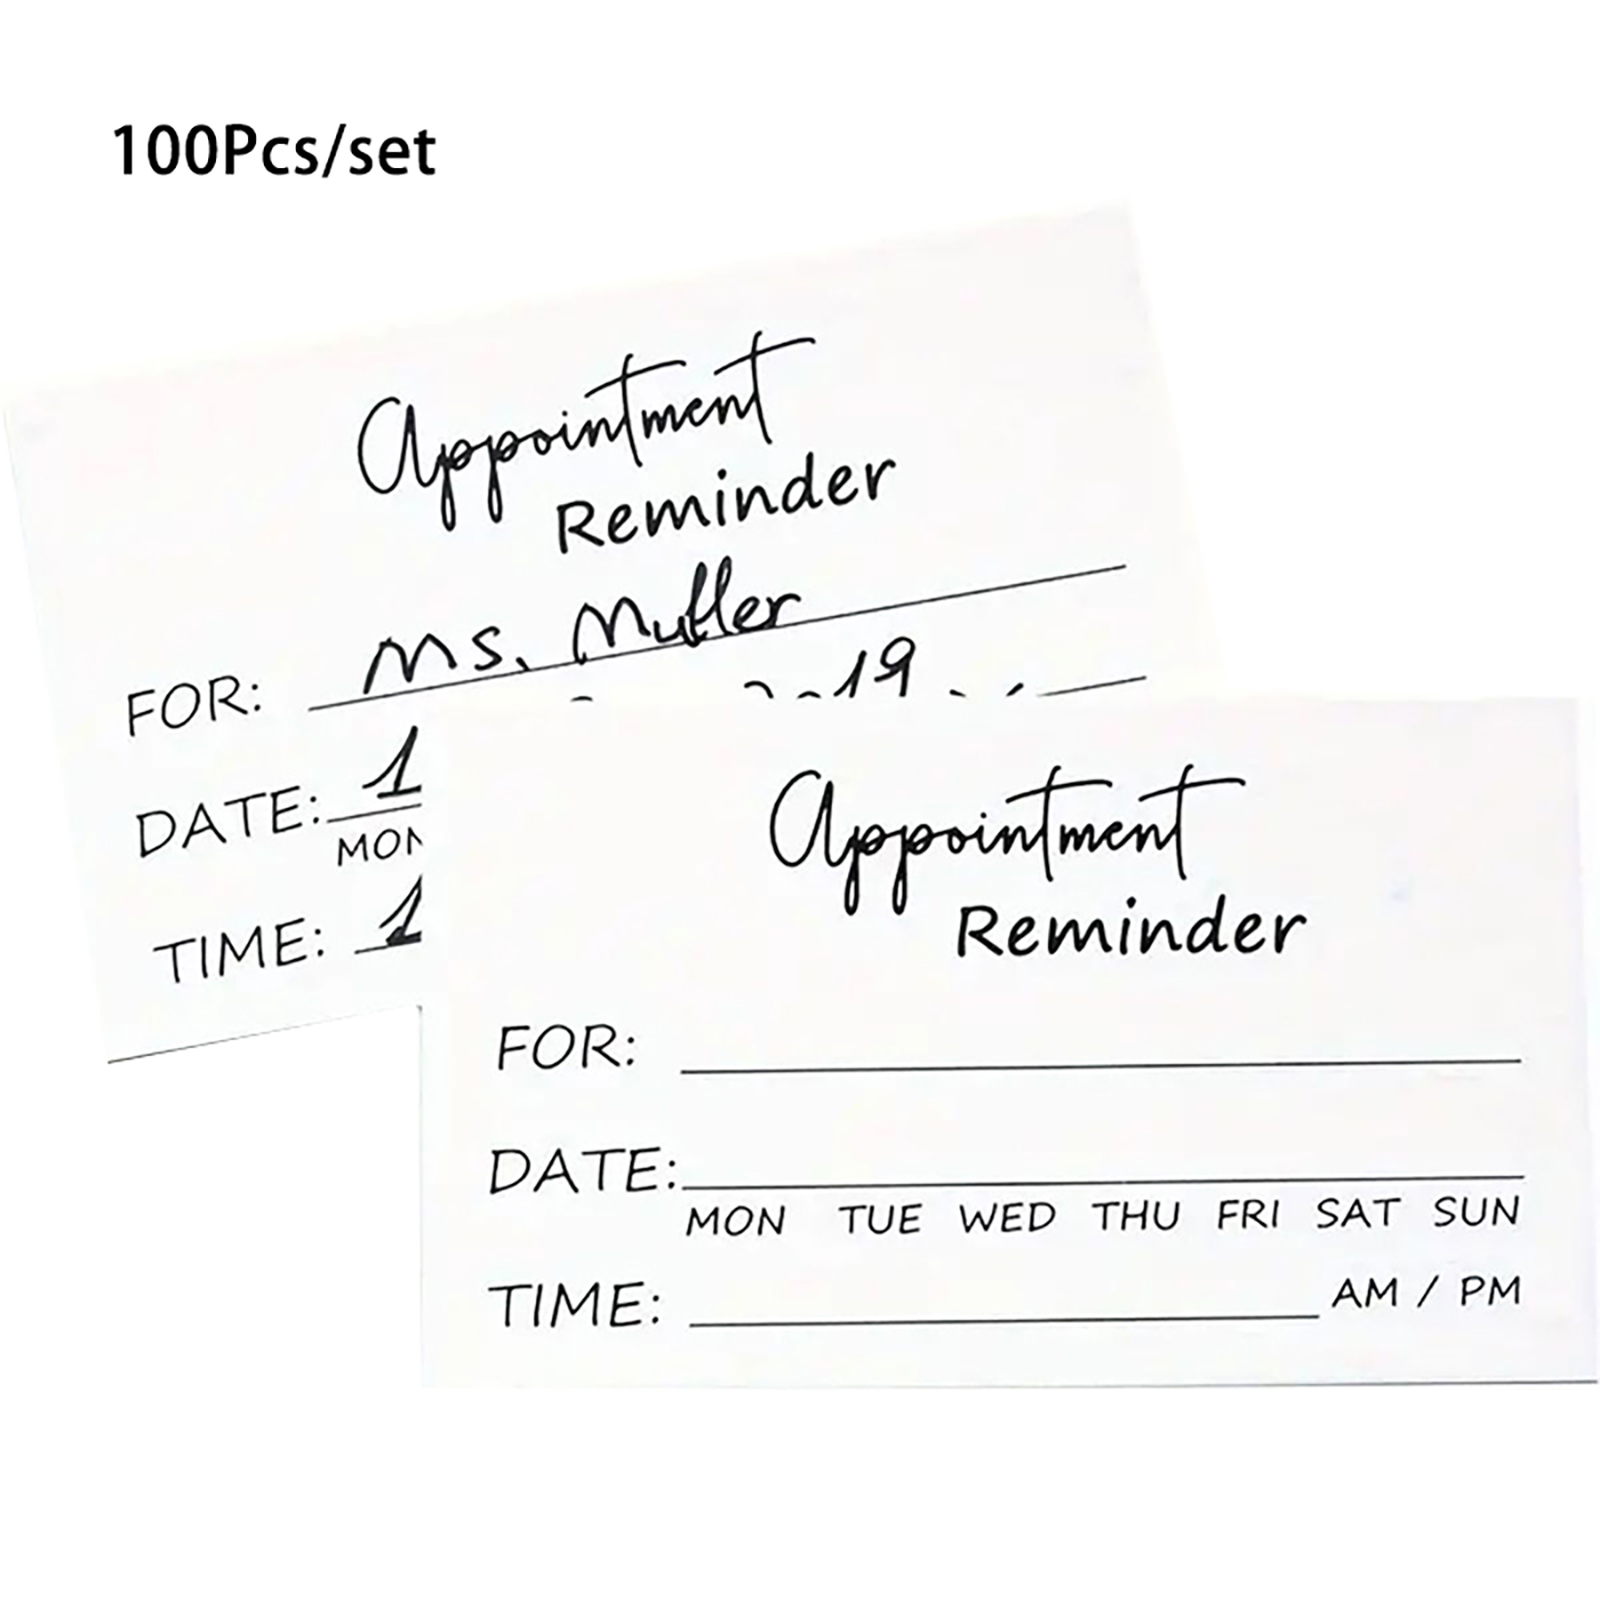 100Pcs/set
Appointment
Reminder
FOR: Ms. Muller
19
DATE: 1
MON
TIME: 1
Appointment
Reminder
FOR:
DATE:
MON TUE WED THU FRI SAT SUN
TIME: AM / PM